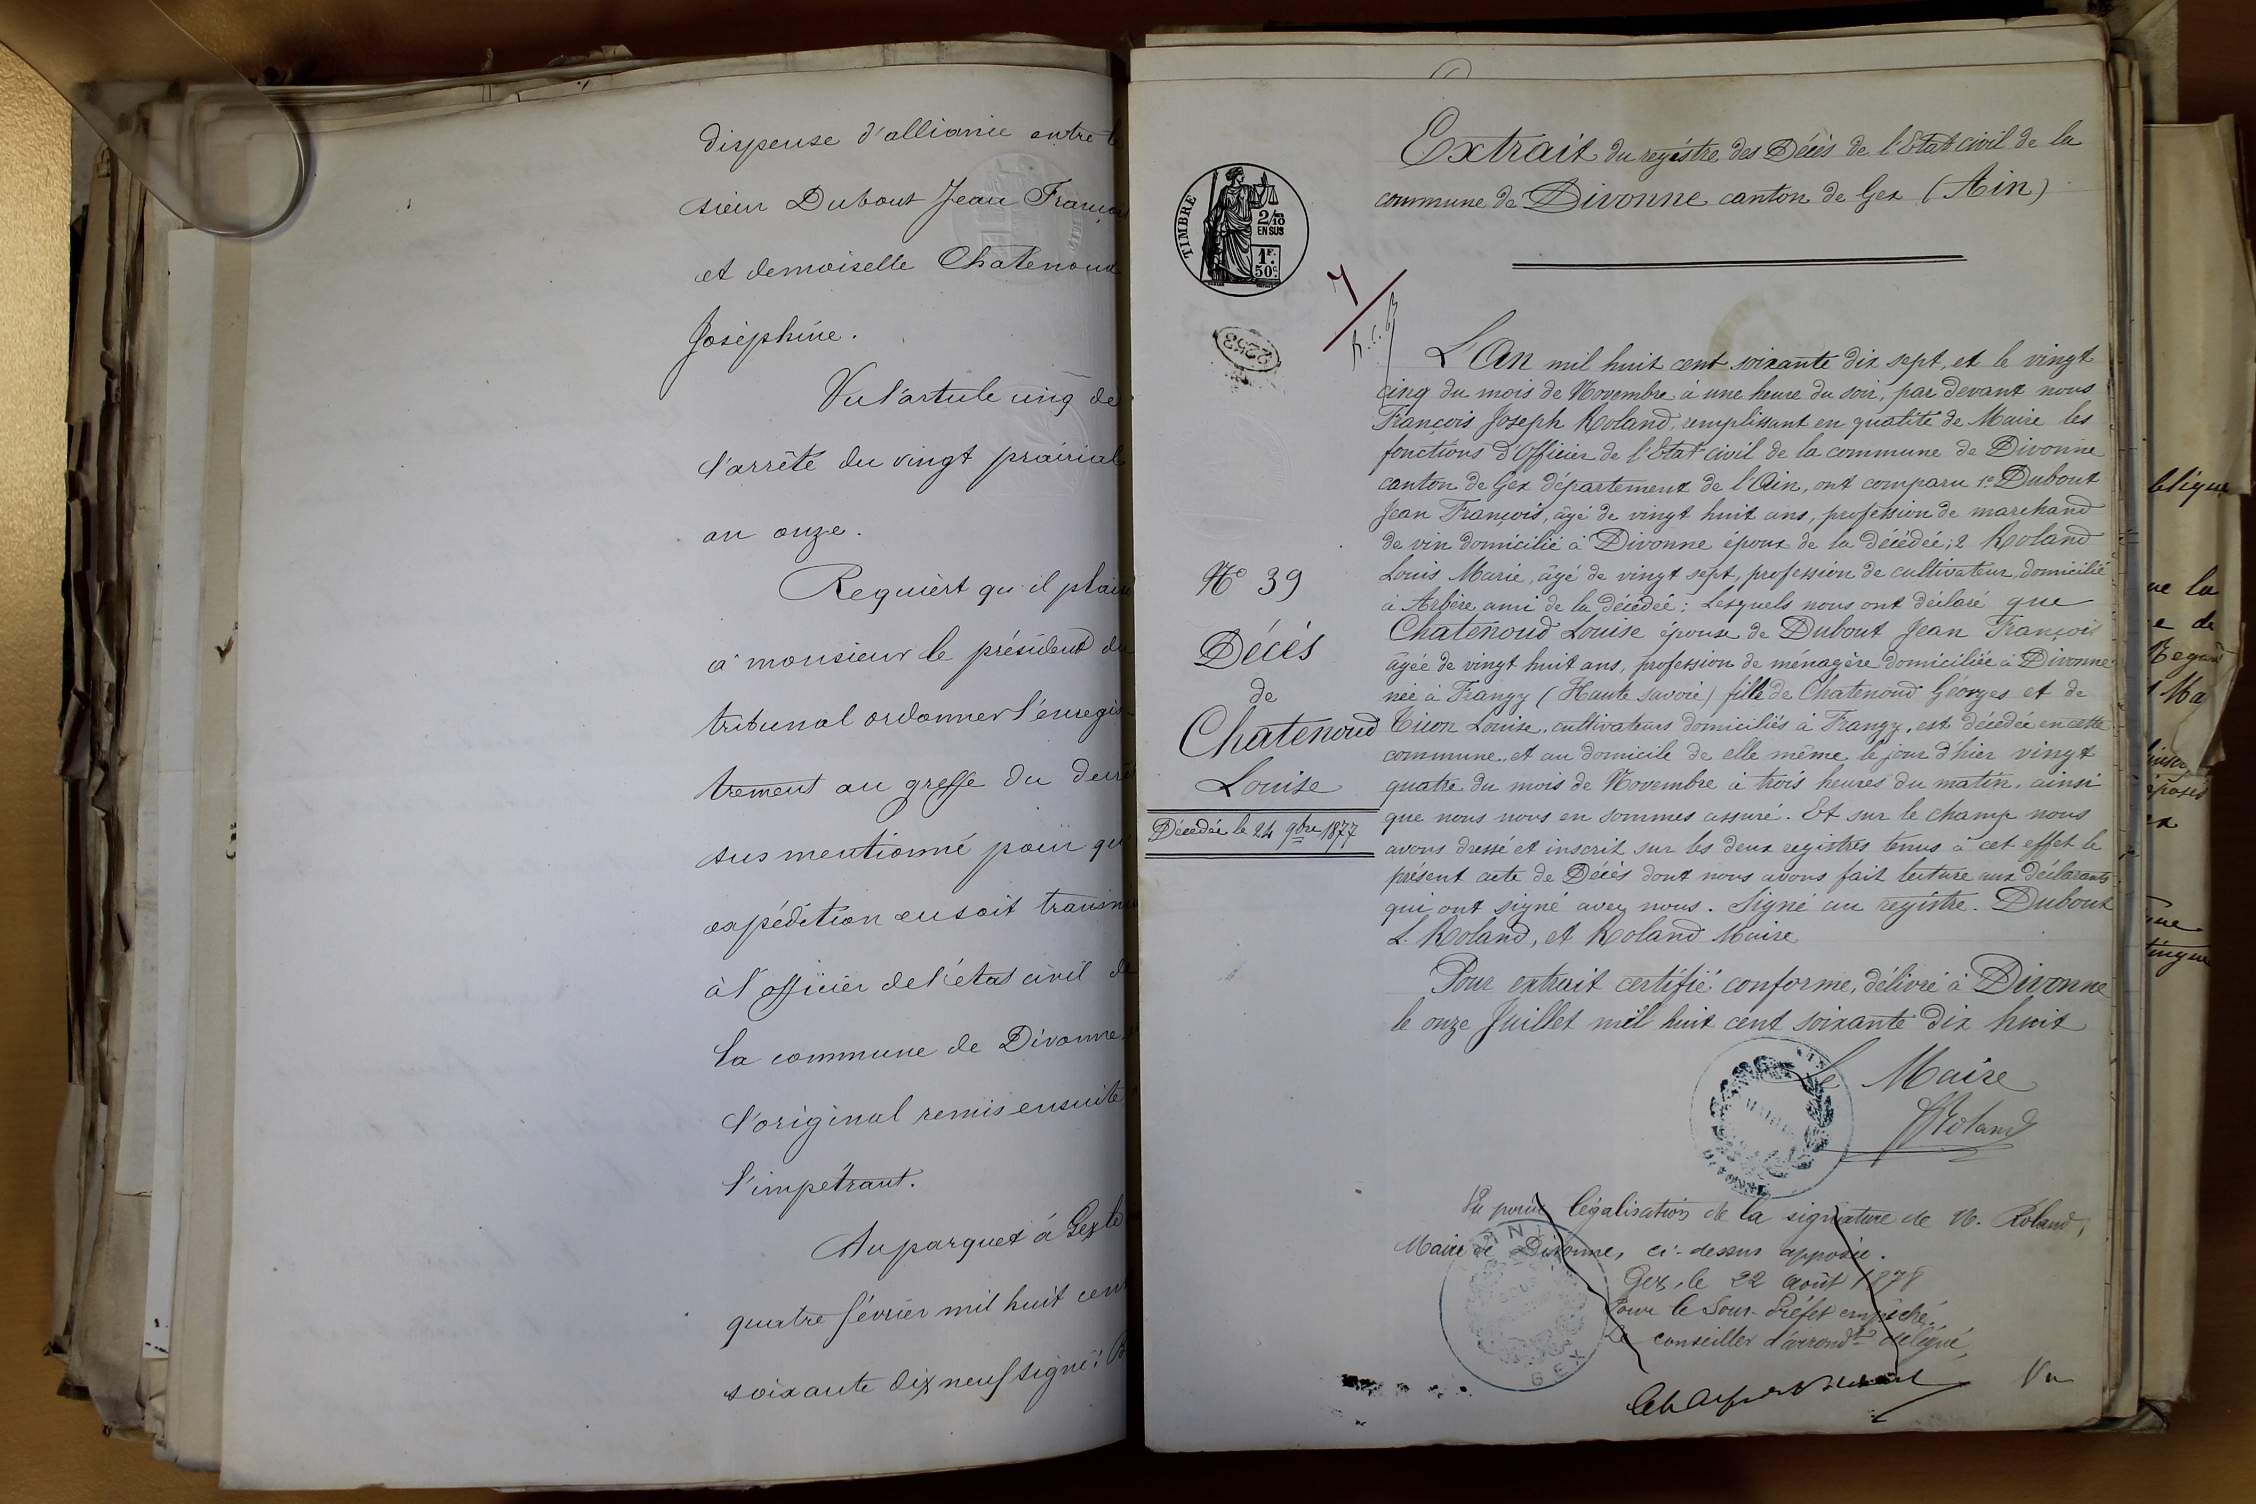 dispense d'alliance entre le
sieur Dubout Jean François
et demoiselle Chatenoud
Joséphine.
Vu l'article cinq de
l'arrêté du vingt prairial
an onze.
Requiert qu'il plaise
à monsieur le président du
tribunal ordonner l'enregis-
trement au greffe du decret
sus mentionné pour qu
expédition en soit transmi
à l'officier de l'état civil de
la commune de Divonne,
l'original remis ensuite
l'impétrant.
Au parquet à Gex le
quatre février mil huit cent
soixante dix neuf signé:
Extrait du registre des Décès de l'Etat civil de la
commune de Divonne canton de Gex (Ain)
TIMBRE
2/10
EN SUS
1F.
50c.
7
2253
L'An mil huit cent soixante dix sept, et le vingt
cinq du mois de Novembre à une heure du soir, par devant nous
François Joseph Roland, remplissant en qualité de Maire les
fonctions d'Officier de l'Etat civil de la commune de Divonne
canton de Gex département de l'Ain, ont comparu 1° Dubout
Jean François, âgé de vingt huit ans, profession de marchand
de vin domicilié à Divonne époux de la décédée; 2 Roland
Louis Marie, âgé de vingt sept, profession de cultivateur, domicilié
à Arbère ami de la décédée: Lesquels nous ont déclaré que
Chatenoud Louise épouse de Dubout Jean François
âgée de vingt huit ans, profession de ménagère domiciliée à Divonne
née à Frangy (Haute savoie) fille de Chatenoud Géorges et de
Louise, cultivateurs domiciliés à Frangy, est décédée en cette
commune, et au domicile de elle même le jour d'hier vingt
quatre du mois de Novembre à trois heures du matin, ainsi
que nous nous en sommes assuré. Et sur le champ nous
avons dressé et inscrit sur les deux registres tenus à cet effet le
présent acte de Décès dont nous avons fait lecture aux déclarants
qui ont signé avec nous. Signé au registre. Dubout
L. Roland, et Roland Maire
N° 39
Décès
de
Chatenoud
Louise
Décédée le 24 9bre 1877
Pour extrait certifié conforme, délivré à Divonne
le onze Juillet mil huit cent soixante dix huit
Le Maire
Roland
MAIRIE
DIVONNE
Vu pour légalisation de la signature de M. Roland,
Maire de Divonne, ci-dessus apposée.
Gex, le 22 août 1878
Pour le Sous-Préfet empêché,
Le conseiller d'arrondt délégué,
GEX
Vu